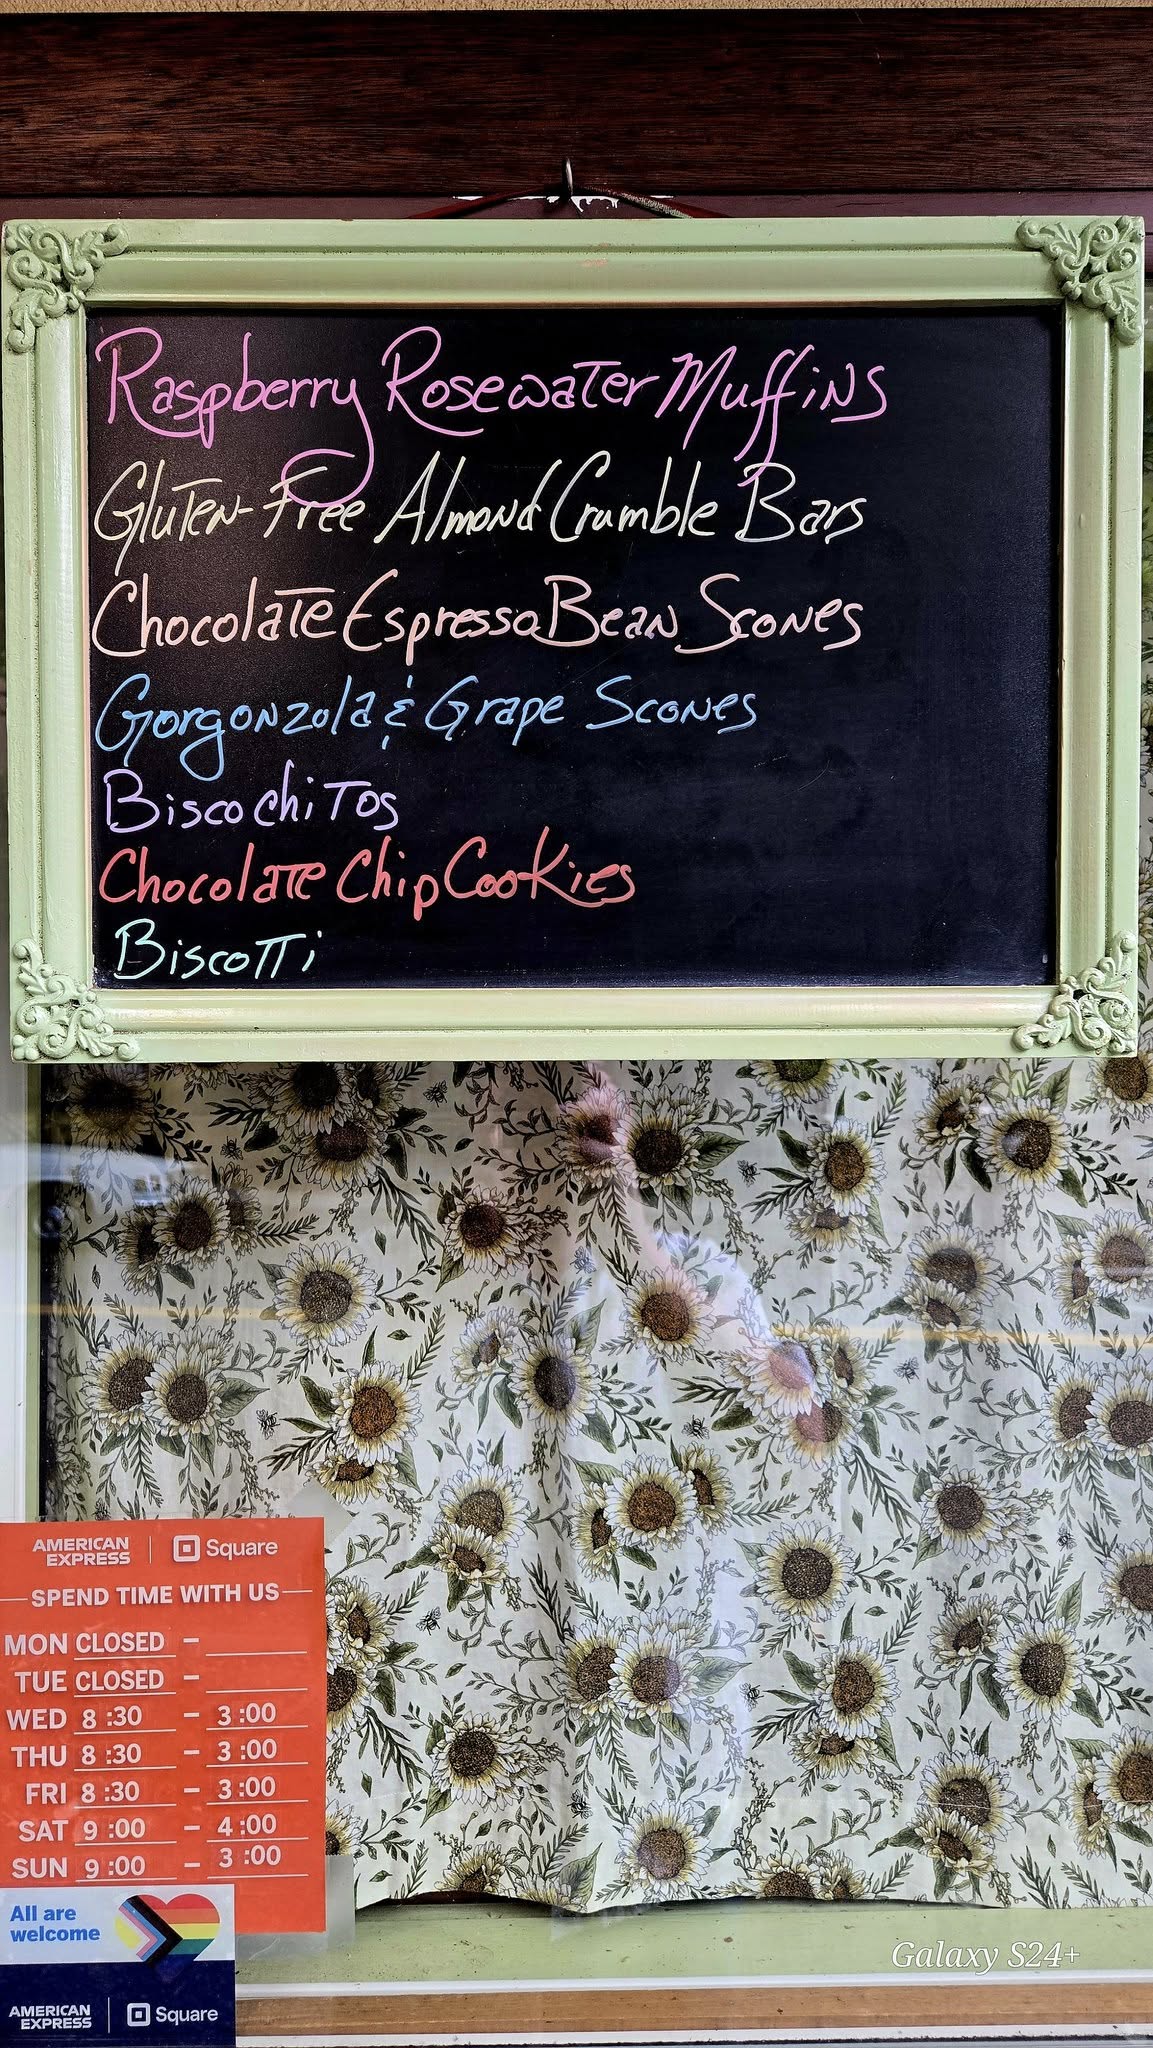 Raspberry Rosewater Muffins
Gluten-Free Almond Crumble Bars
Chocolate Espresso Bean Scones
Gorgonzola & Grape Scones
Biscochitos
Chocolate Chip Cookies
Biscotti
AMERICAN EXPRESS | Square
SPEND TIME WITH US
MON CLOSED –
TUE CLOSED –
WED 8:30 – 3:00
THU 8:30 – 3:00
FRI 8:30 – 3:00
SAT 9:00 – 4:00
SUN 9:00 – 3:00
All are
welcome
AMERICAN EXPRESS | Square
Galaxy S24+